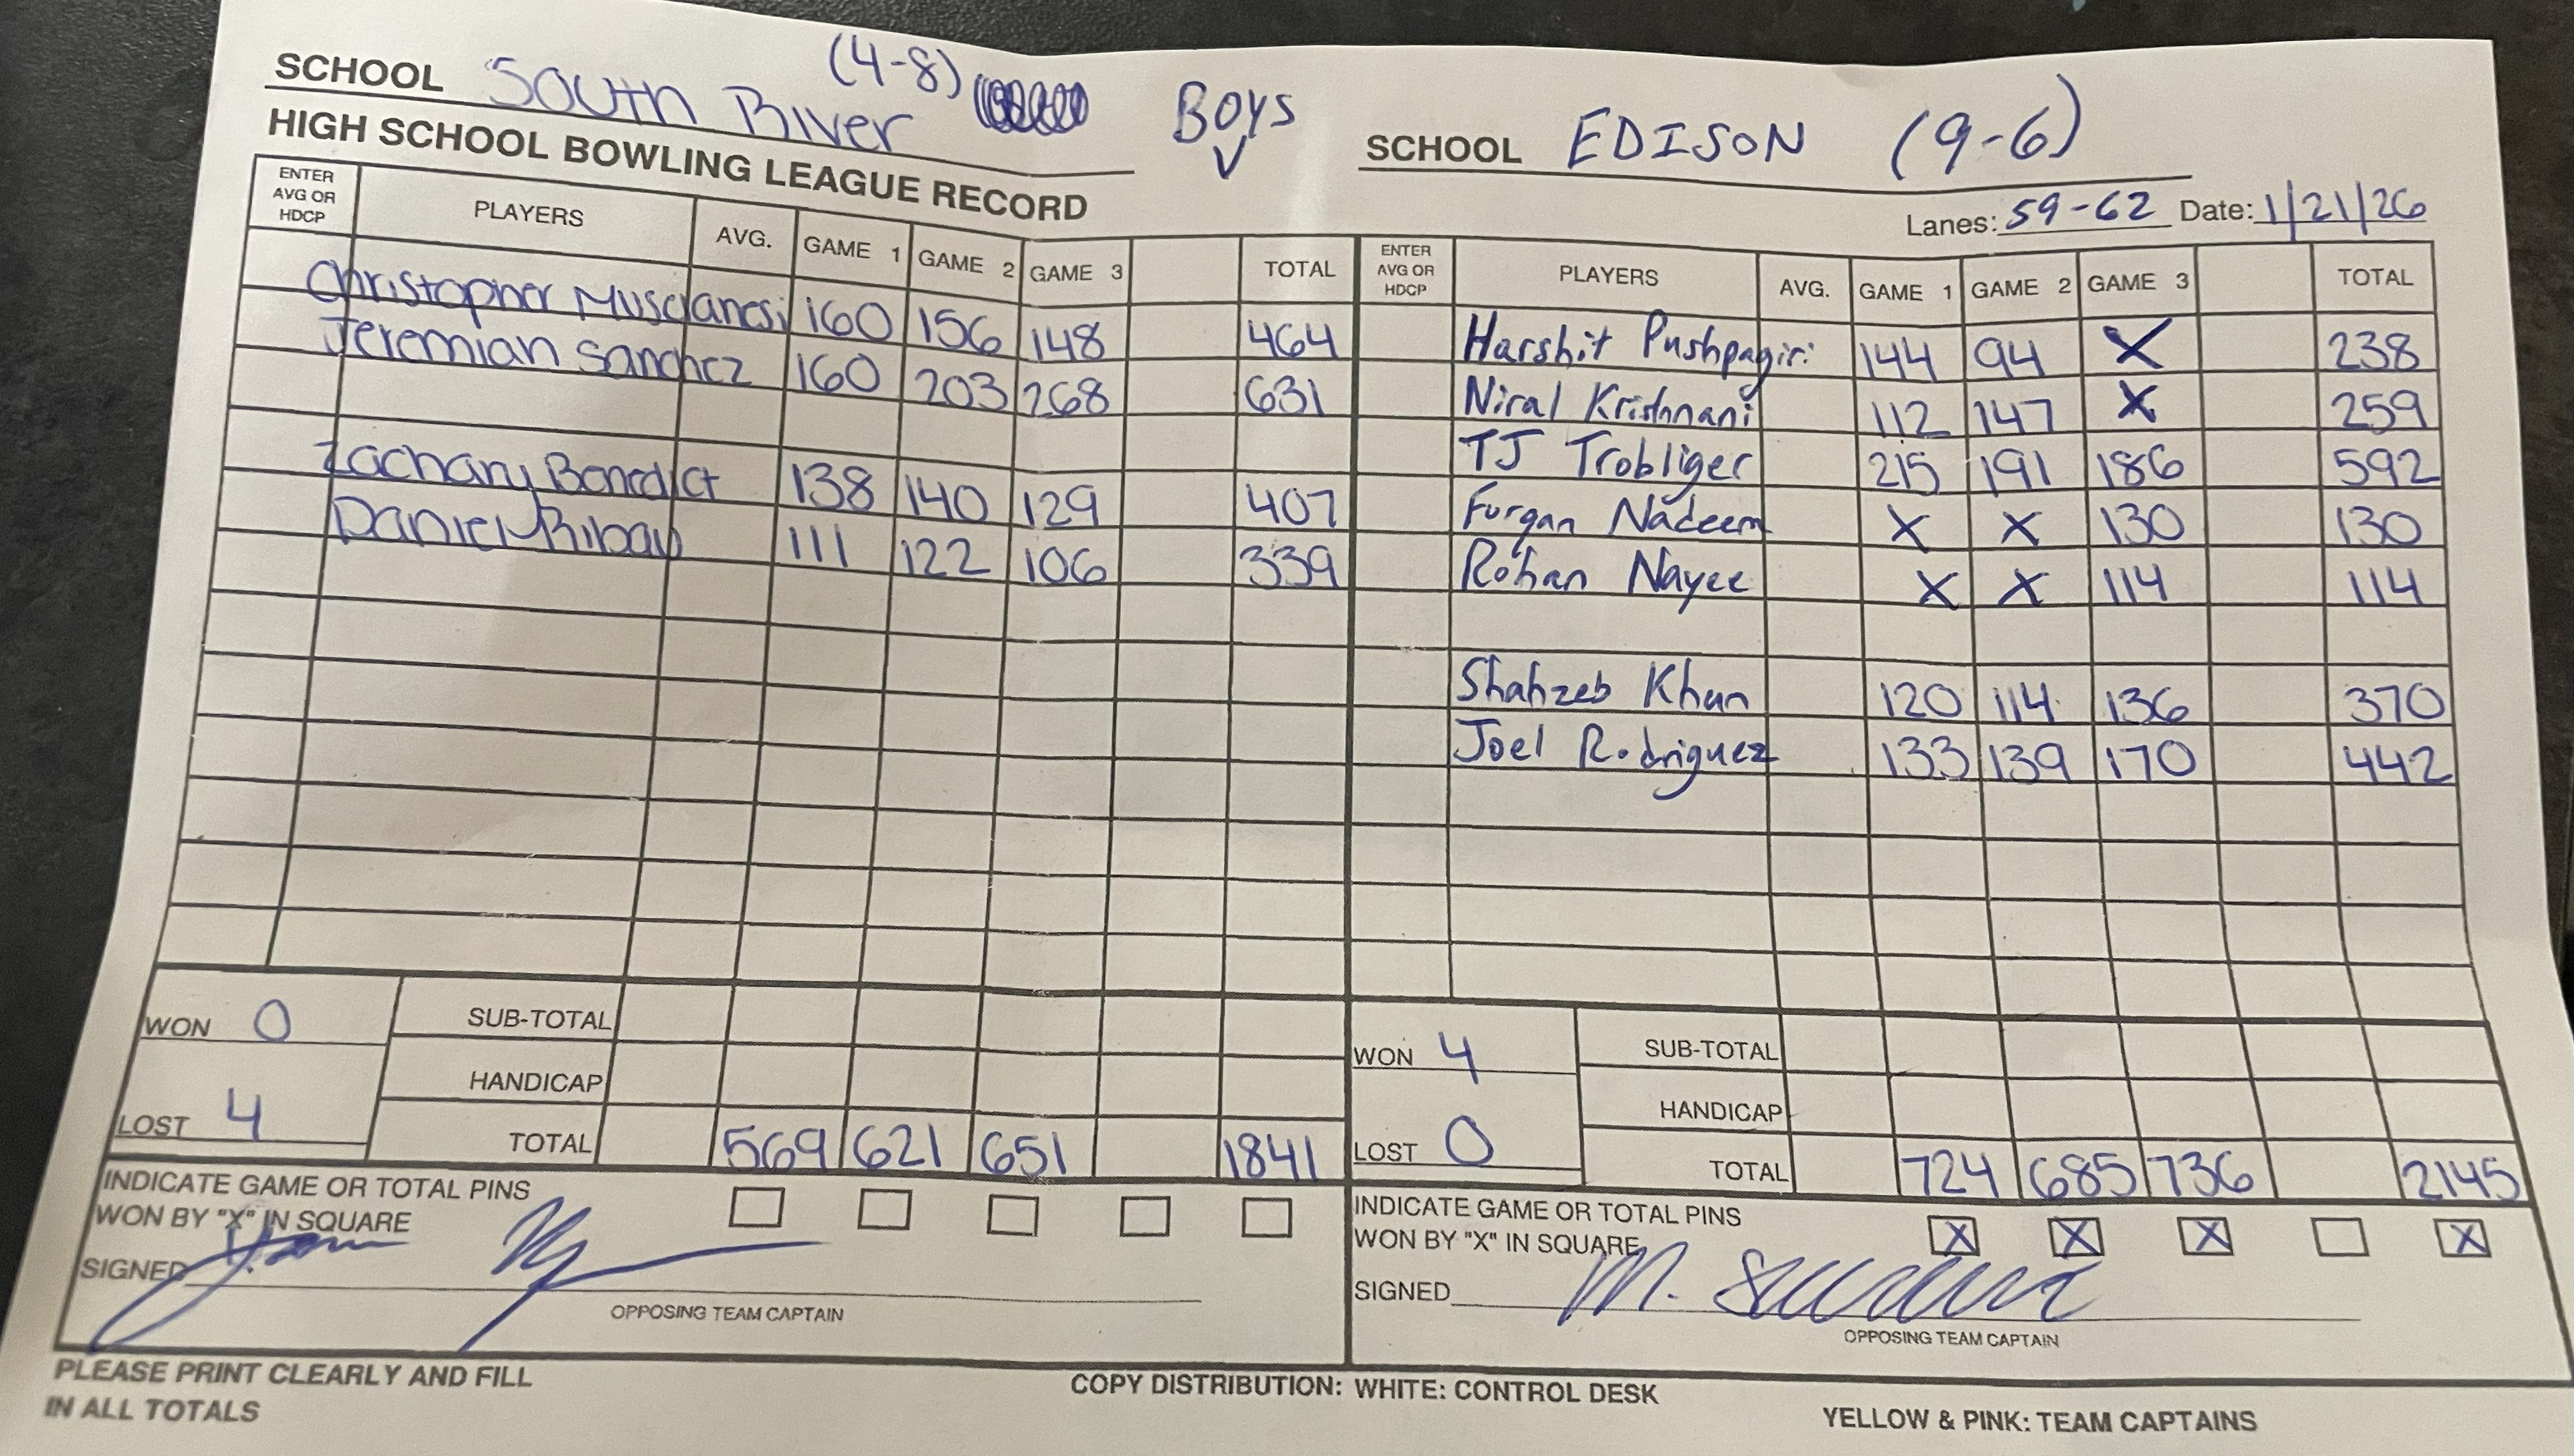 SCHOOL South River (4-8) Boys
HIGH SCHOOL BOWLING LEAGUE RECORD
SCHOOL EDISON (9-6)
Lanes: 59-62 Date: 1/21/26
ENTER AVG OR HDCP PLAYERS AVG. GAME 1 GAME 2 GAME 3 TOTAL
Christopher 160 156 148 464
Jeremiah Sanchez 160 203 268 631
Zachary Benedict 138 140 129 407
Daniel 111 122 106 339
WON 0
LOST 4
SUB-TOTAL
HANDICAP
TOTAL 569 621 651 1841
INDICATE GAME OR TOTAL PINS
WON BY "X" IN SQUARE
SIGNED
OPPOSING TEAM CAPTAIN
ENTER AVG OR HDCP PLAYERS AVG. GAME 1 GAME 2 GAME 3 TOTAL
Harshit Pushpagiri 144 94 X 238
Niral Krishnani 112 147 X 259
TJ Trobliger 215 191 186 592
Furqan Nadeem X X 130 130
Rohan Nayee X X 114 114
Shahzeb Khan 120 114 136 370
Joel Rodriguez 133 139 170 442
WON 4
LOST 0
SUB-TOTAL
HANDICAP
TOTAL 724 685 736 2145
INDICATE GAME OR TOTAL PINS
WON BY "X" IN SQUARE X X X X
SIGNED M.
OPPOSING TEAM CAPTAIN
PLEASE PRINT CLEARLY AND FILL
IN ALL TOTALS
COPY DISTRIBUTION: WHITE: CONTROL DESK
YELLOW & PINK: TEAM CAPTAINS